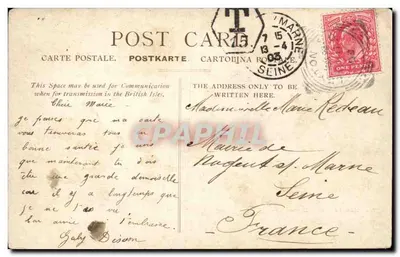 POST CARD
CARTE POSTALE. POSTKARTE CARTOLINA
This Space may be used for Communication
when for transmission in the British Isles.
THE ADDRESS ONLY TO BE
WRITTEN HERE.
T
15
MARNE
7 15
13 - 4
03
SEINE
ONE PENNY
CPARAMA
Chère Marie
je pense que ma carte
vous trouvera tous en
bonne santée je
que maintenant tu dois
être une grande demoiselle
car il y a longtemps que
je ne t'ai vu
Ton amie t'embrasse
Gaby
Mademoiselle Marie Redeau
Mairie de
Nogent s/. Marne
Seine
France